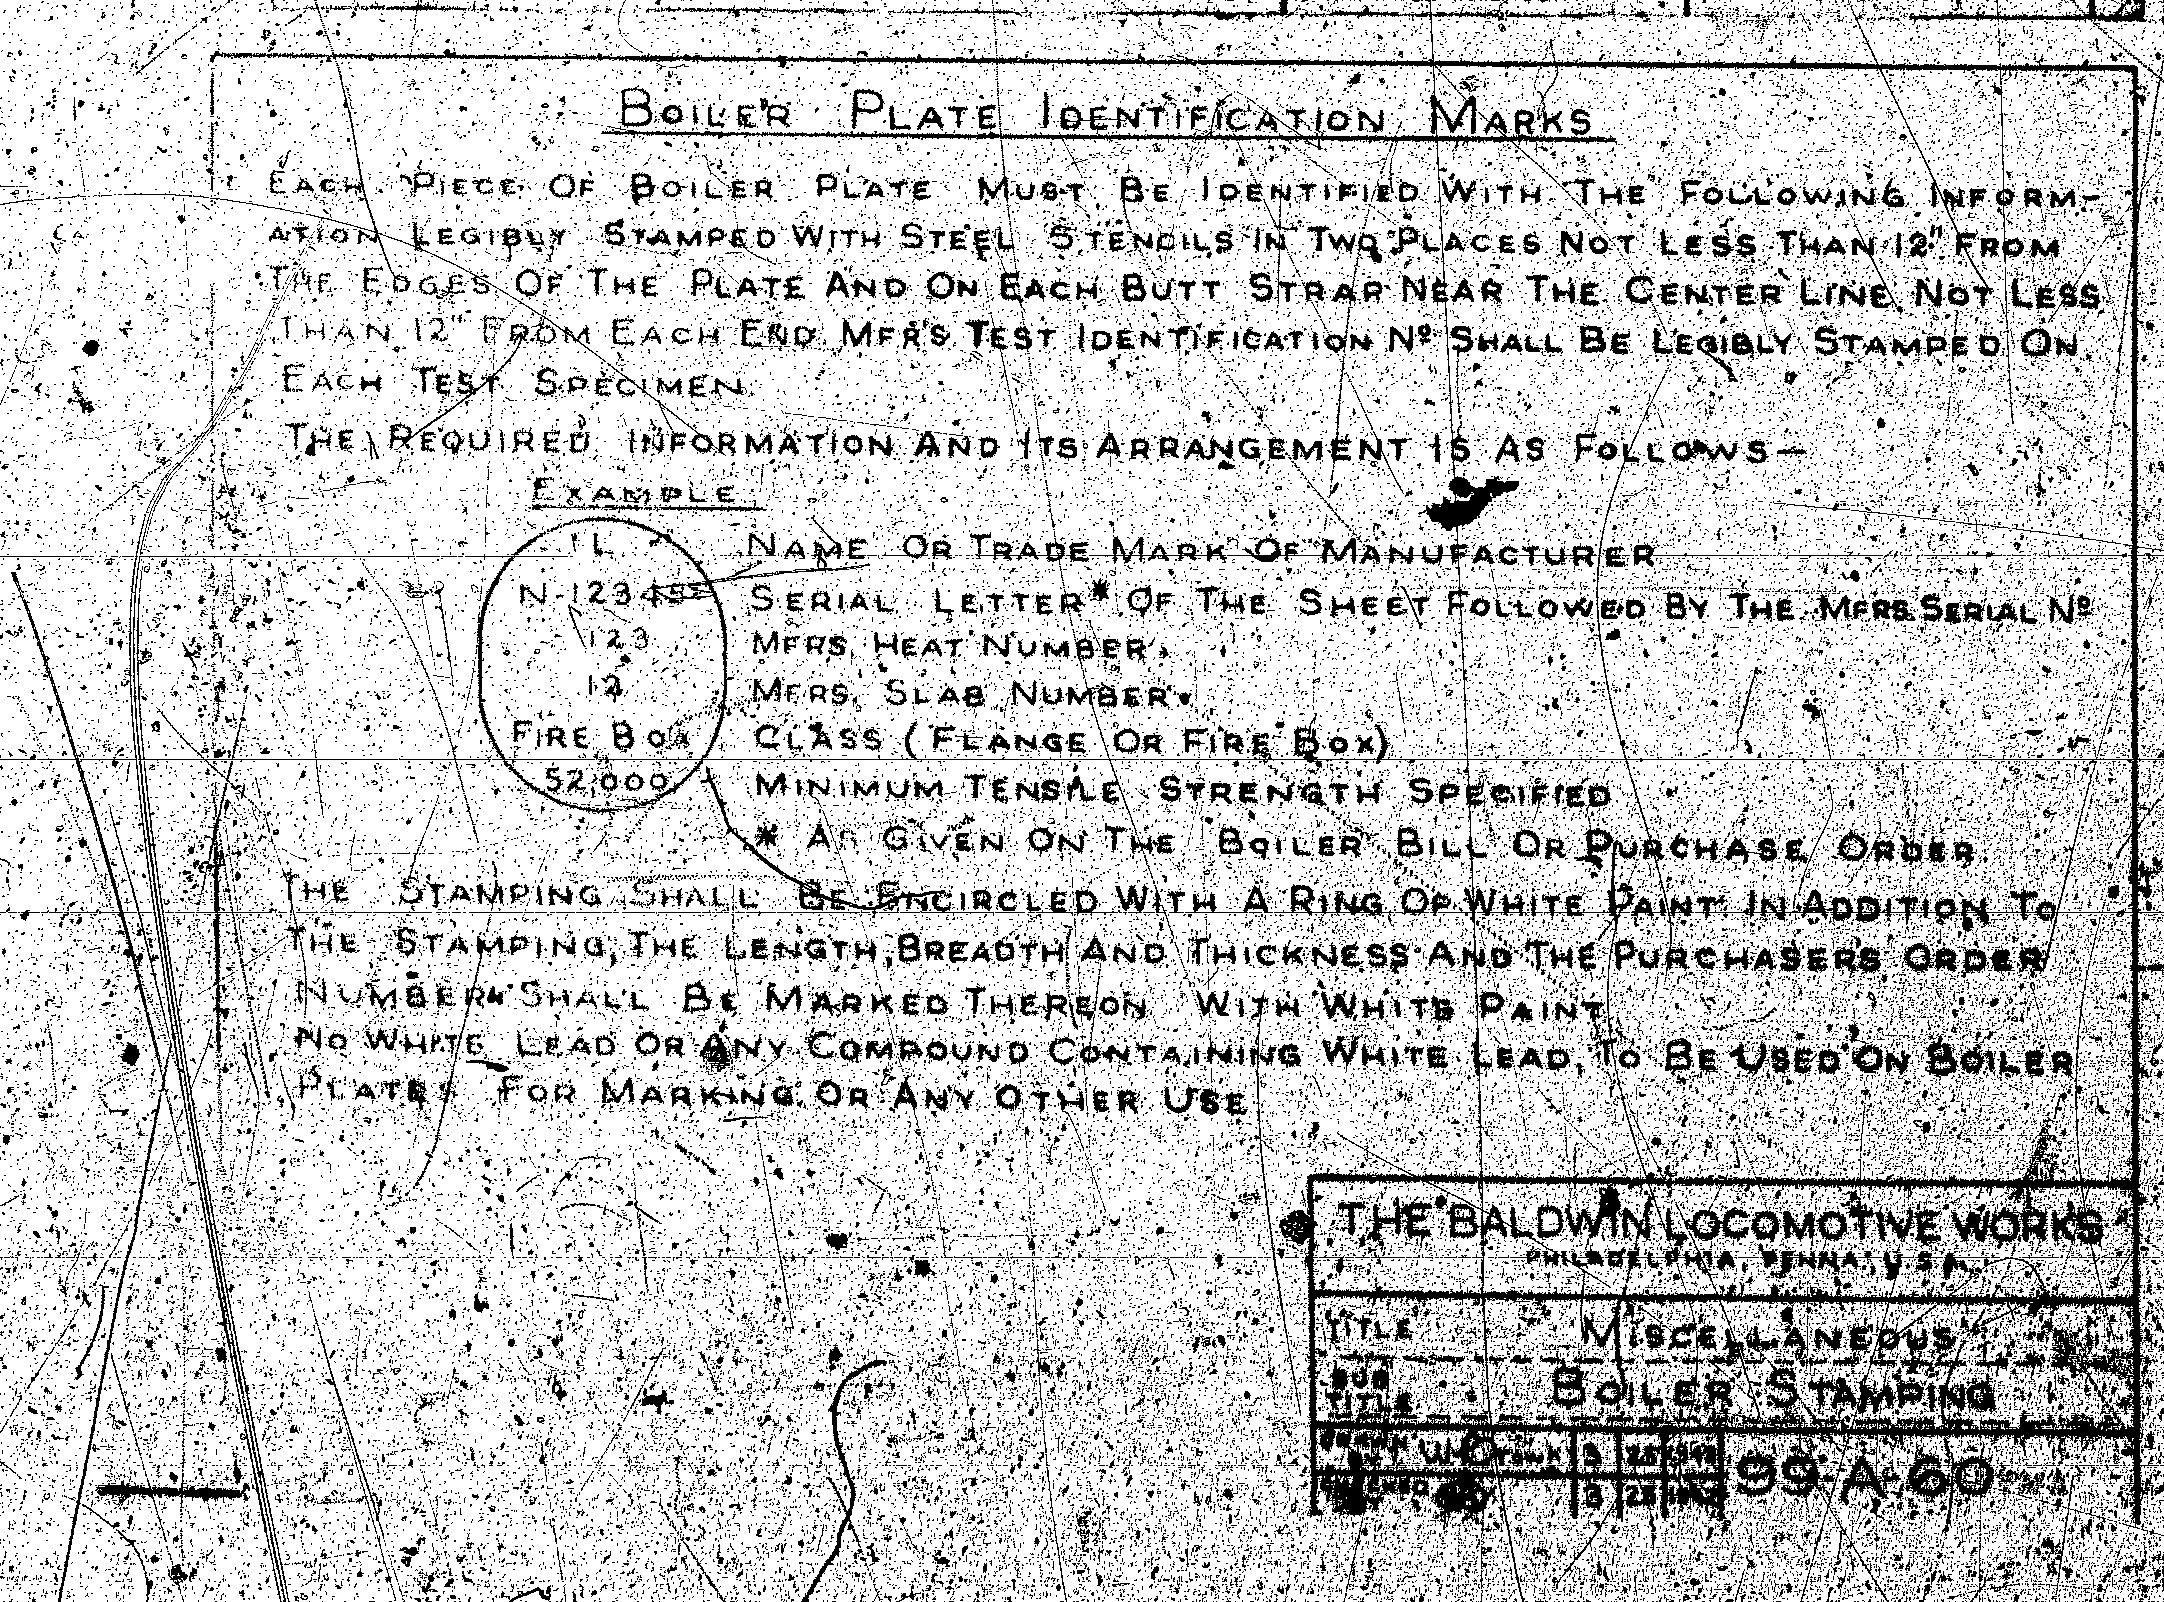 BOILER PLATE IDENTIFICATION MARKS
EACH PIECE OF BOILER PLATE MUST BE IDENTIFIED WITH THE FOLLOWING INFORM-
ATION LEGIBLY STAMPED WITH STEEL STENCILS IN TWO PLACES NOT LESS THAN 12" FROM
THE EDGES OF THE PLATE AND ON EACH BUTT STRAP NEAR THE CENTER LINE NOT LESS
THAN 12" FROM EACH END MFR'S TEST IDENTIFICATION Nº SHALL BE LEGIBLY STAMPED ON
EACH TEST SPECIMEN
THE REQUIRED INFORMATION AND ITS ARRANGEMENT IS AS FOLLOWS—
EXAMPLE
L NAME OR TRADE MARK OF MANUFACTURER
N-12345 SERIAL LETTER* OF THE SHEET FOLLOWED BY THE MFRS SERIAL Nº
123 MFRS. HEAT NUMBER.
12 MFRS. SLAB NUMBER.
FIRE BOX CLASS (FLANGE OR FIRE BOX)
52,000 MINIMUM TENSILE STRENGTH SPECIFIED
* AS GIVEN ON THE BOILER BILL OR PURCHASE ORDER
THE STAMPING SHALL BE ENCIRCLED WITH A RING OF WHITE PAINT. IN ADDITION TO
THE STAMPING, THE LENGTH, BREADTH AND THICKNESS AND THE PURCHASERS ORDER
NUMBER SHALL BE MARKED THEREON WITH WHITE PAINT
NO WHITE LEAD OR ANY COMPOUND CONTAINING WHITE LEAD, TO BE USED ON BOILER
PLATES FOR MARKING OR ANY OTHER USE
THE BALDWIN LOCOMOTIVE WORKS
PHILADELPHIA, PENNA., U.S.A.
TITLE MISCELLANEOUS
SUB
TITLE BOILER STAMPING
3 25 99-A-60
3 25